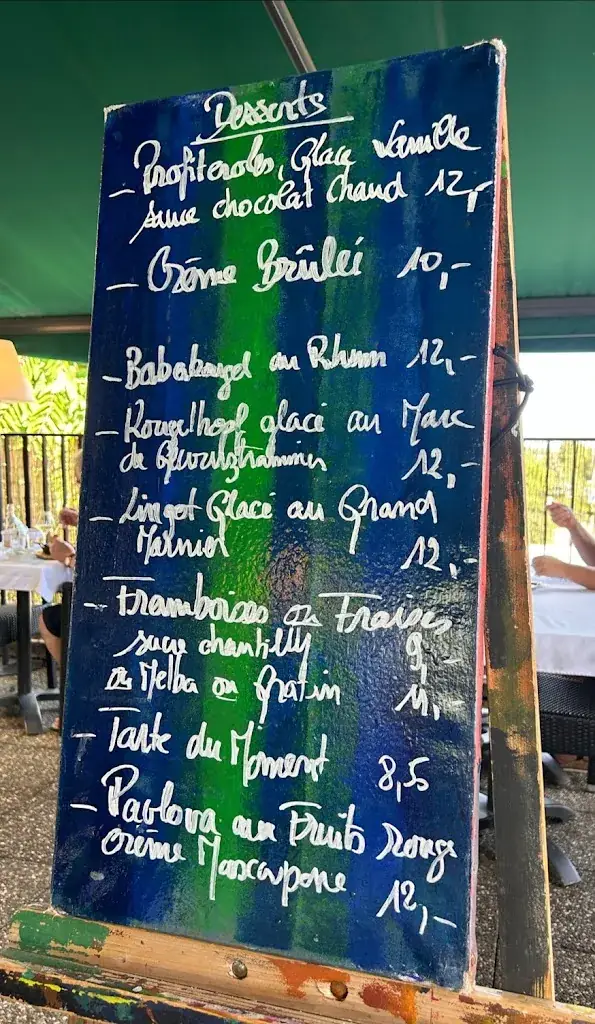 Desserts
- Profiteroles, Glace Vanille
sauce chocolat Chaud 12,-
- Crème Brûlée 10,-
- Babakougel au Rhum 12,-
- Kougelhopf glacé au Marc
de Gewurztraminer 12,-
- Lingot Glacé au Grand
Marnier 12,-
- Framboises ou Fraises
sucre chantilly 9,-
ou Melba ou Gratin 11,-
- Tarte du Moment 8,50
- Pavlova aux Fruits Rouge
crème Mascarpone 12,-